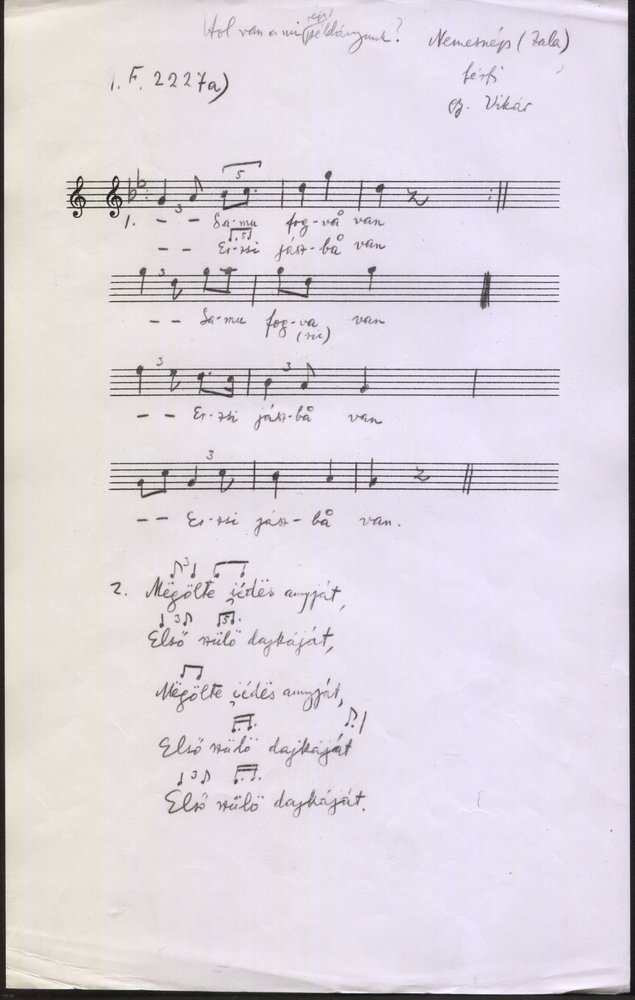 Hol van a mi régi példányunk?
Nemesnép (Zala)
férfi
gy. Vikár
1. F. 2227a)
3 5
1. – – Sa-mu fog-vå van
– – Er-zsi jász-bå van
3
– – Sa-mu fog-va van
3 3
– – Er-zsi jász-bå van
3
– – Er-zsi jász-bå van.
3
2. Mëgölte édës annyát,
3
Első szülö dajkáját,
Mëgölte édës annyát,
Első szülö dajkáját
3
Első szülö dajkáját.